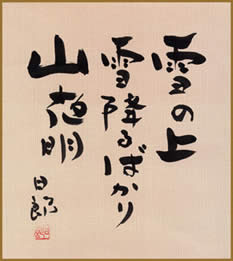 雪の上
雪降るばかり
山 明
日郎